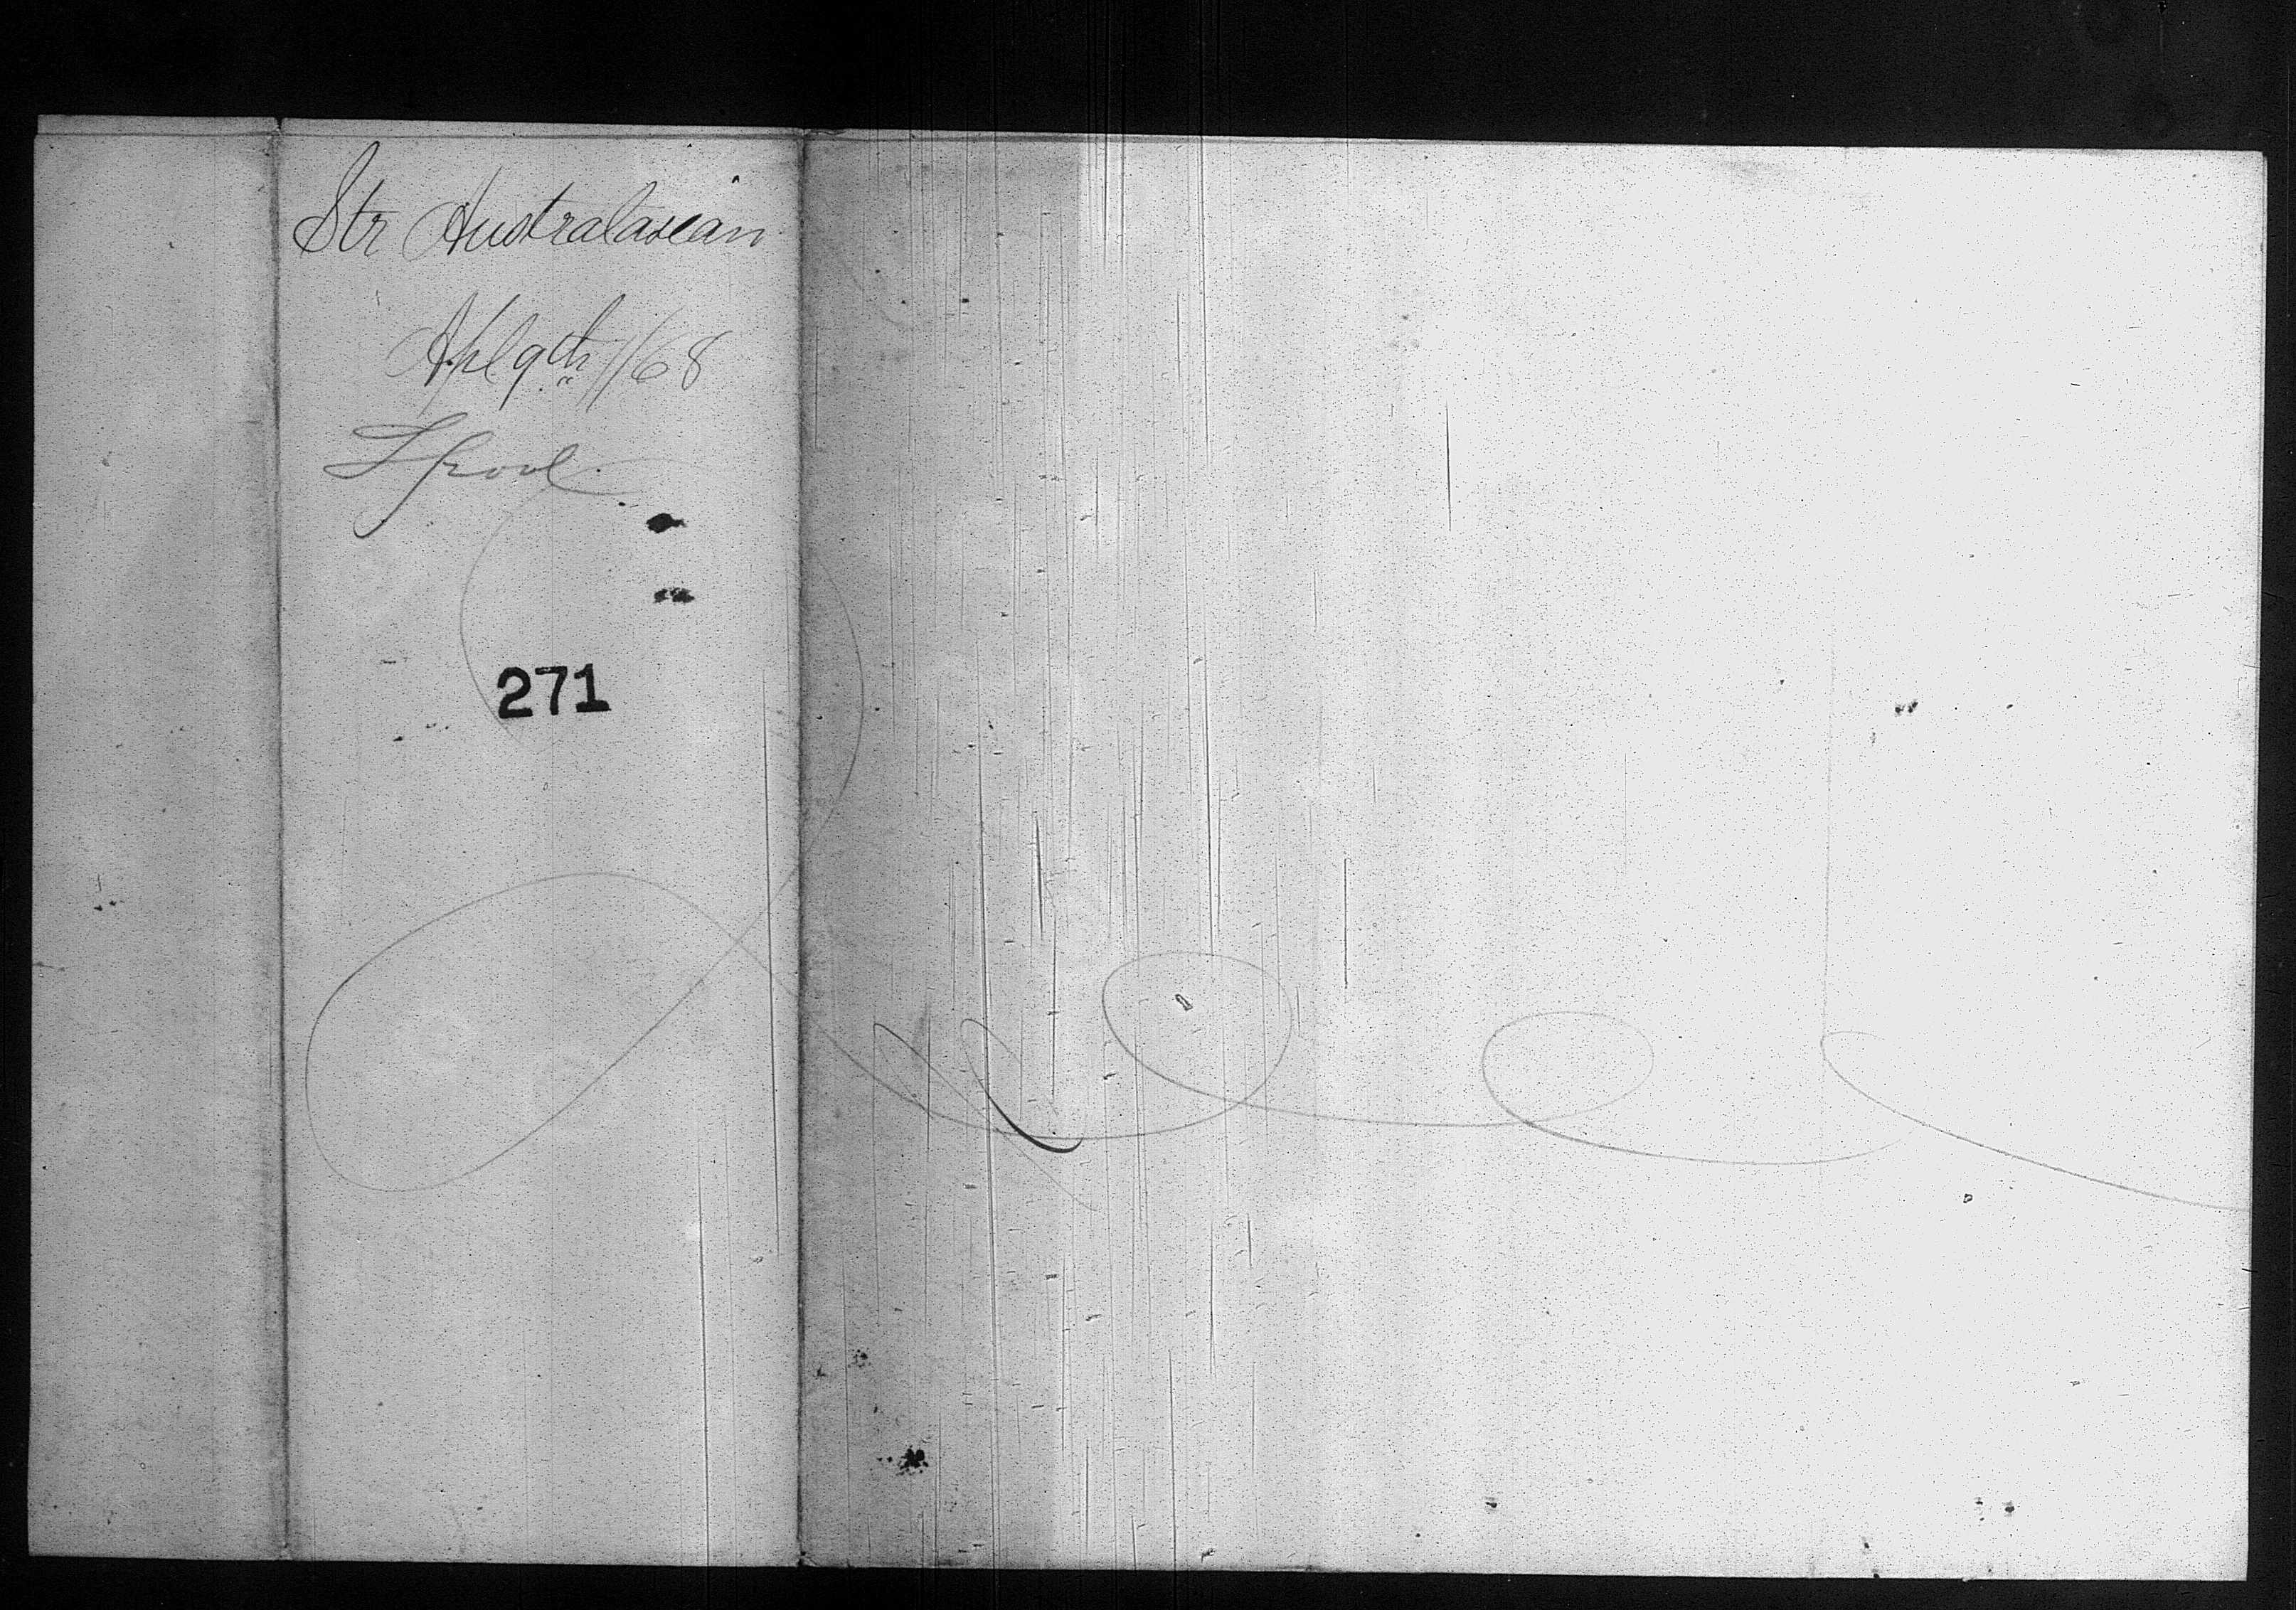 Str Australasian
Apl 9th /68
Lpool
271